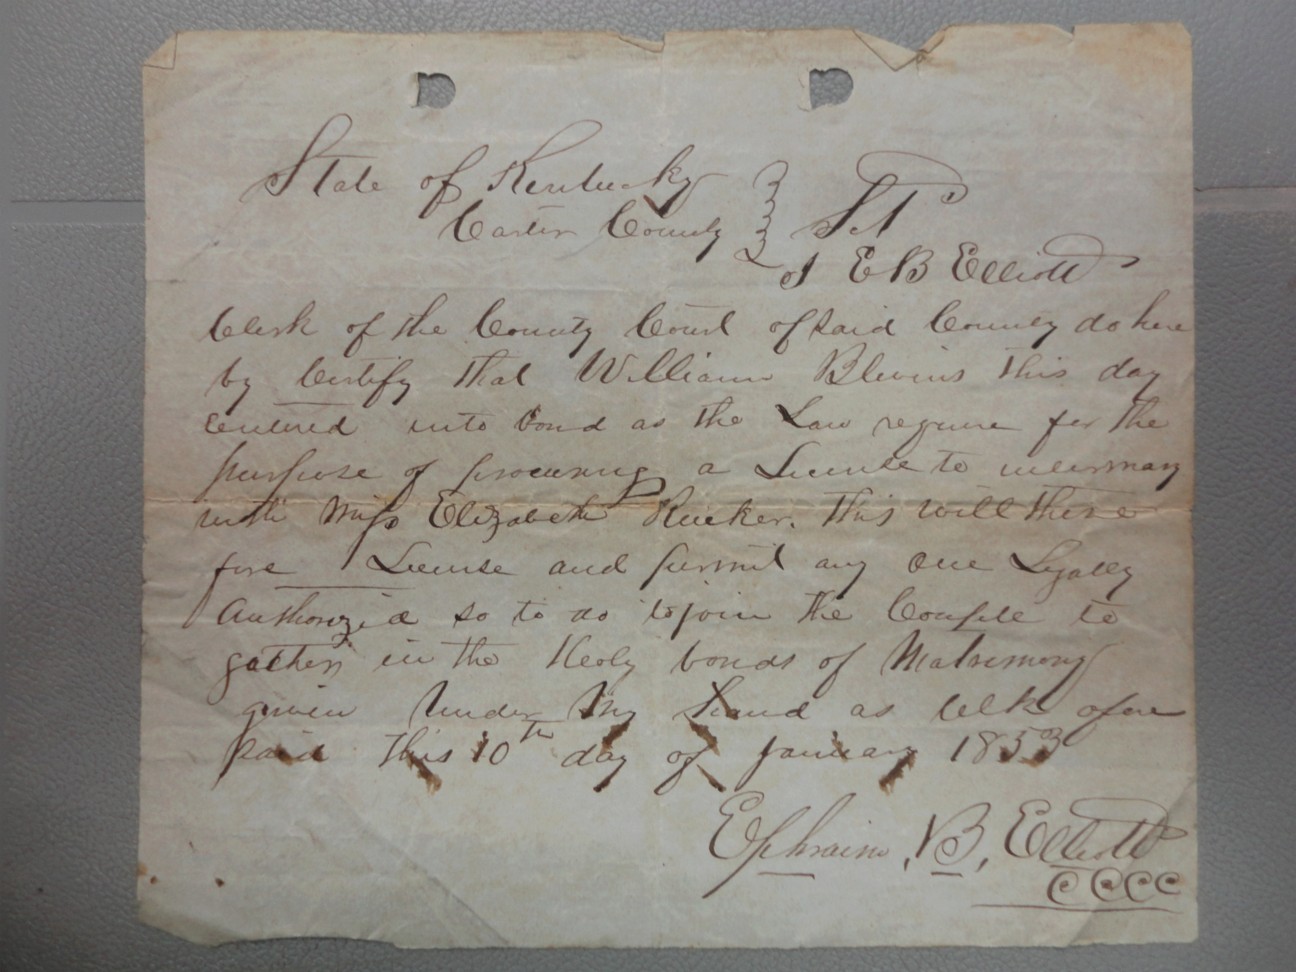 State of Kentucky
Carter County } Sct
I E B Elliott
Clerk of the County Court of said County do here
by Certify that William Blevins this day
Entered into bond as the Law require for the
purpose of procuring a License to intermary
with Miss Elizabeth Rucker. this will there
fore License and permit any one Legally
Authorized so to do to join the Couple to
gather in the Holy bonds of Matrimony
given under My hand as Clk afore
said this 10th day of January 1853
Ephraim . B. Elliott
CCCC